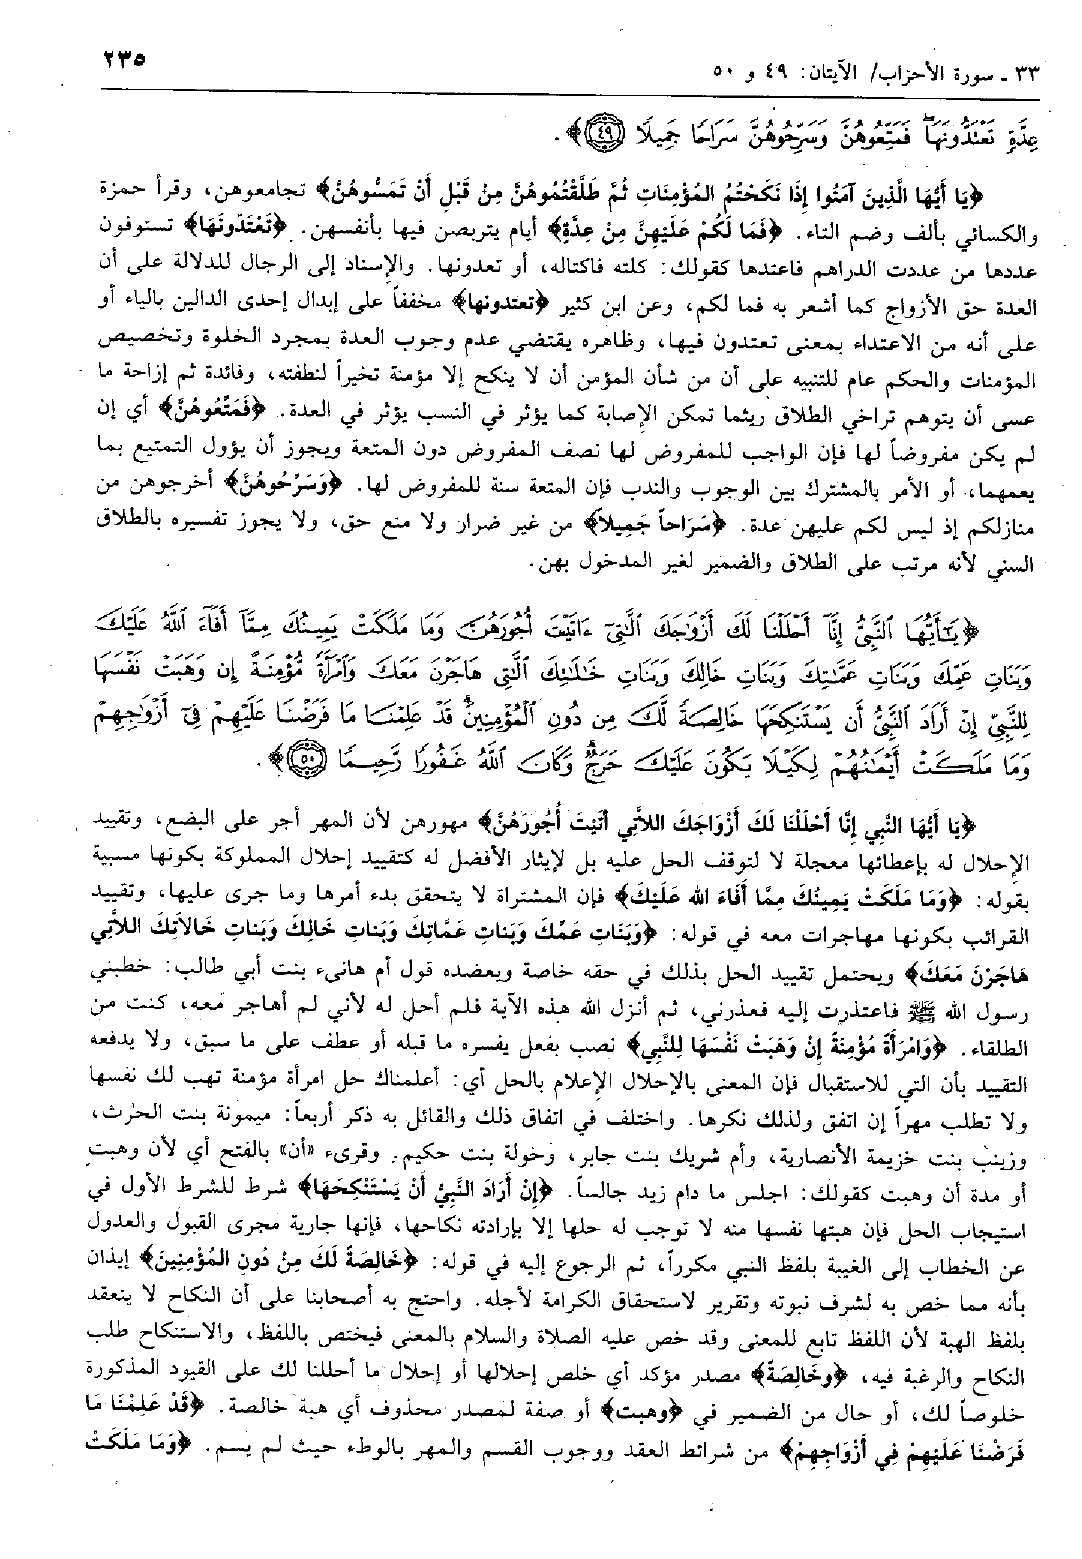 ٣٣ ـ سورة الأحزاب/ الآيتان: ٤٩ و ٥٠
٢٣٥
عِدَّةٍ تَعْتَدُّونَهَا فَمَتِّعُوهُنَّ وَسَرِّحُوهُنَّ سَرَاحًا جَمِيلًا ﴿٤٩﴾﴾.
﴿يَا أَيُّهَا الَّذِينَ آمَنُوا إِذَا نَكَحْتُمُ المُؤْمِنَاتِ ثُمَّ طَلَّقْتُمُوهُنَّ مِنْ قَبْلِ أَنْ تَمَسُّوهُنَّ﴾ تجامعوهن، وقرأ حمزة
والكسائي بألف وضم التاء. ﴿فَمَا لَكُمْ عَلَيْهِنَّ مِنْ عِدَّةٍ﴾ أيام يتربصن فيها بأنفسهن. ﴿تَعْتَدُّونَهَا﴾ تستوفون
عددها من عددت الدراهم فاعتدها كقولك: كلته فاكتاله، أو تعدونها. والإسناد إلى الرجال للدلالة على أن
العدة حق الأزواج كما أشعر به فما لكم، وعن ابن كثير ﴿تعتدونها﴾ مخففاً على إبدال إحدى الدالين بالياء أو
على أنه من الاعتداء بمعنى تعتدون فيها، وظاهره يقتضي عدم وجوب العدة بمجرد الخلوة وتخصيص
المؤمنات والحكم عام للتنبيه على أن من شأن المؤمن أن لا ينكح إلا مؤمنة تخيراً لنطفته، وفائدة ثم إزاحة ما
عسى أن يتوهم تراخي الطلاق ريثما تمكن الإصابة كما يؤثر في النسب يؤثر في العدة. ﴿فَمَتِّعُوهُنَّ﴾ أي إن
لم يكن مفروضاً لها فإن الواجب للمفروض لها نصف المفروض دون المتعة ويجوز أن يؤول التمتيع بما
يعمهما، أو الأمر بالمشترك بين الوجوب والندب فإن المتعة سنة للمفروض لها. ﴿وَسَرِّحُوهُنَّ﴾ أخرجوهن من
منازلكم إذ ليس لكم عليهن عدة. ﴿سَرَاحاً جَمِيلاً﴾ من غير ضرار ولا منع حق، ولا يجوز تفسيره بالطلاق
السني لأنه مرتب على الطلاق والضمير لغير المدخول بهن.
﴿يَـٰٓأَيُّهَا ٱلنَّبِيُّ إِنَّآ أَحْلَلْنَا لَكَ أَزْوَٰجَكَ ٱلَّٰتِيٓ ءَاتَيْتَ أُجُورَهُنَّ وَمَا مَلَكَتْ يَمِينُكَ مِمَّآ أَفَآءَ ٱللَّهُ عَلَيْكَ
وَبَنَاتِ عَمِّكَ وَبَنَاتِ عَمَّٰتِكَ وَبَنَاتِ خَالِكَ وَبَنَاتِ خَٰلَٰتِكَ ٱلَّٰتِي هَاجَرْنَ مَعَكَ وَٱمْرَأَةً مُّؤْمِنَةً إِن وَهَبَتْ نَفْسَهَا
لِلنَّبِيِّ إِنْ أَرَادَ ٱلنَّبِيُّ أَن يَسْتَنكِحَهَا خَالِصَةً لَّكَ مِن دُونِ ٱلْمُؤْمِنِينَۗ قَدْ عَلِمْنَا مَا فَرَضْنَا عَلَيْهِمْ فِيٓ أَزْوَٰجِهِمْ
وَمَا مَلَكَتْ أَيْمَٰنُهُمْ لِكَيْلَا يَكُونَ عَلَيْكَ حَرَجٌۗ وَكَانَ ٱللَّهُ غَفُورًا رَّحِيمًا ﴿٥٠﴾﴾.
﴿يَا أَيُّهَا النَّبِي إِنَّا أَحْلَلْنَا لَكَ أَزْوَاجَكَ اللاَّتِي آتَيْتَ أُجُورَهُنَّ﴾ مهورهن لأن المهر أجر على البضع، وتقييد
الإحلال له بإعطائها معجلة لا لتوقف الحل عليه بل لإيثار الأفضل له كتقييد إحلال المملوكة بكونها مسبية
بقوله: ﴿وَمَا مَلَكَتْ يَمِينُكَ مِمَّا أَفَاءَ الله عَلَيْكَ﴾ فإن المشتراة لا يتحقق بدء أمرها وما جرى عليها، وتقييد
القرائب بكونها مهاجرات معه في قوله: ﴿وَبَنَاتِ عَمِّكَ وَبَنَاتِ عَمَّاتِكَ وَبَنَاتِ خَالِكَ وَبَنَاتِ خَالاَتِكَ اللاَّتِي
هَاجَرْنَ مَعَكَ﴾ ويحتمل تقييد الحل بذلك في حقه خاصة ويعضده قول أم هانىء بنت أبي طالب: خطبني
رسول الله ﷺ فاعتذرت إليه فعذرني، ثم أنزل الله هذه الآية فلم أحل له لأني لم أهاجر معه، كنت من
الطلقاء. ﴿وَامْرَأَةً مُؤْمِنَةً إِنْ وَهَبَتْ نَفْسَهَا لِلنَّبِي﴾ نصب بفعل يفسره ما قبله أو عطف على ما سبق، ولا يدفعه
التقييد بأن التي للاستقبال فإن المعنى بالإحلال الإعلام بالحل أي: أعلمناك حل امرأة مؤمنة تهب لك نفسها
ولا تطلب مهراً إن اتفق ولذلك نكرها. واختلف في اتفاق ذلك والقائل به ذكر أربعاً: ميمونة بنت الحارث،
وزينب بنت خزيمة الأنصارية، وأم شريك بنت جابر، وخولة بنت حكيم. وقرىء «أن» بالفتح أي لأن وهبت
أو مدة أن وهبت كقولك: اجلس ما دام زيد جالساً. ﴿إِنْ أَرَادَ النَّبِيُّ أَنْ يَسْتَنْكِحَهَا﴾ شرط للشرط الأول في
استيجاب الحل فإن هبتها نفسها منه لا توجب له حلها إلا بإرادته نكاحها، فإنها جارية مجرى القبول والعدول
عن الخطاب إلى الغيبة بلفظ النبي مكرراً، ثم الرجوع إليه في قوله: ﴿خَالِصَةً لَكَ مِنْ دُونِ المُؤْمِنِينَ﴾ إيذان
بأنه مما خص به لشرف نبوته وتقرير لاستحقاق الكرامة لأجله. واحتج به أصحابنا على أن النكاح لا ينعقد
بلفظ الهبة لأن اللفظ تابع للمعنى وقد خص عليه الصلاة والسلام بالمعنى فيختص باللفظ، والاستنكاح طلب
النكاح والرغبة فيه، ﴿وخَالِصَةً﴾ مصدر مؤكد أي خلص إحلالها أو إحلال ما أحللنا لك على القيود المذكورة
خلوصاً لك، أو حال من الضمير في ﴿وهبت﴾ أو صفة لمصدر محذوف أي هبة خالصة. ﴿قَدْ عَلِمْنَا مَا
فَرَضْنَا عَلَيْهِمْ فِي أَزْوَاجِهِمْ﴾ من شرائط العقد ووجوب القسم والمهر بالوطء حيث لم يسم. ﴿وَمَا مَلَكَتْ